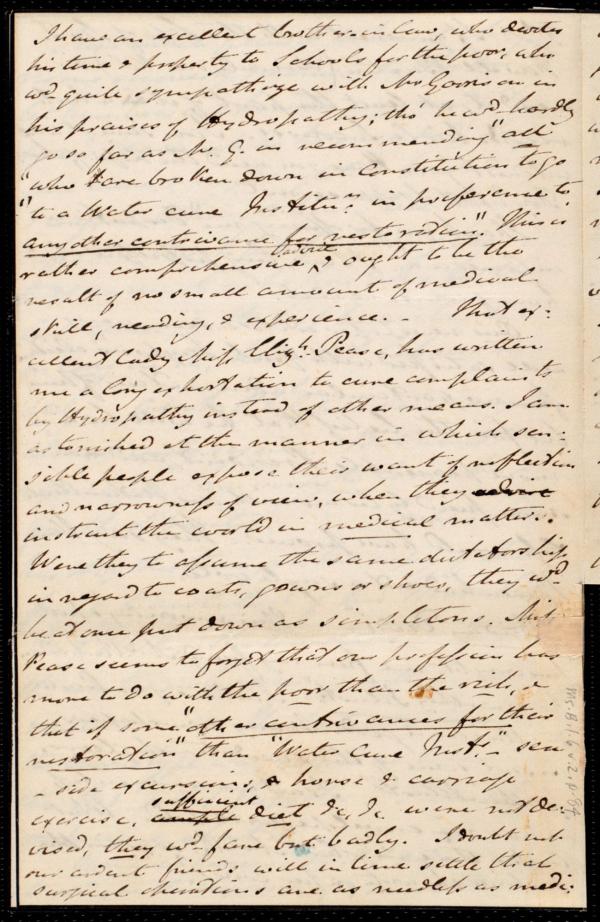 I have an excellent brother-in-law, who devotes
his time & property to Schools for the poor, who
wd quite sympathize with Mr Garrison in
his praises of Hydropathy; tho' he wd hardly
go so far as Mr. G. in recommending "all
"who have broken down in Constitution to go
"to a Water cure Institun. in preference to
any other contrivance for restoration". This is
rather comprehensive advice, & ought to be the
result of no small amount of medical
skill, reading, & experience. - That ex-
cellent Lady Miss Elizh. Pease, has written
me a long exhortation to cure complaints
by Hydropathy instead of other means. I am
astonished at the manner in which sen-
sible people expose their want of reflection
and narrowness of view, when they advise
instruct the world in medical matters.
Were they to assume the same dictatorship
in regard to coats, gowns or shoes, they wd
be at once put down as simpletons. Miss
Pease seems to forget that our profession has
more to do with the poor than the rich, &
that if some "other contrivances for their
restoration" than "Water Cure Insts." - sea
- side excursions, & horse & carriage
exercise, ample sufficient diet &c, &c were not de-
vised, they wd fare but badly. I doubt not
our ardent friends will in time settle that
surgical operations are as needless as medi-
Ms.B.1.6 v.2 p.84